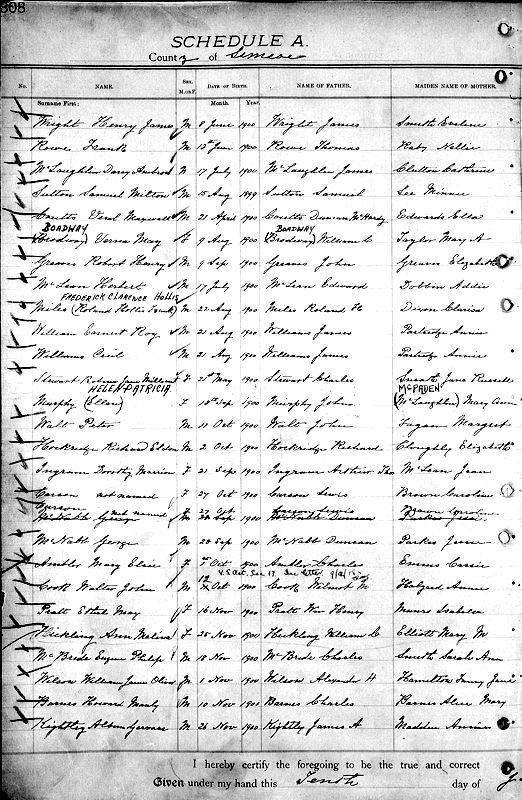 808
SCHEDULE A.
County of Simcoe
No. NAME. Sex. M. or F. DATE OF BIRTH. NAME OF FATHER. MAIDEN NAME OF MOTHER.
Surname First: Month. Year.
Wright Henry James M 8 June 1900 Wright James Smith Evelene
Rowe Frank M 13th June 1900 Rowe Thomas Ruby Nellie
McLaughlin Darcy M 17 July 1900 McLaughlin James Clutton Catherine
Sutton Samuel Milton M 15 Aug 1899 Sutton Samuel Lee Minnie
Coutts Maxwell M 21 April 1900 Coutts Duncan McHardy Edwards Ella
BOADWAY BOADWAY
(Brodway) Verna May F 9 Aug 1900 (Brodway) William C Taylor Mary A
Greaves Robert Henry M 9 Sep 1900 Greaves John Greaves Elizabeth
McLean Herbert M 17 July 1900 McLean Edward Dobbin Addie
FREDERICK CLARENCE HOLLIS
Miles (Roland Hollis Frank) M 22 Aug 1900 Miles Roland H Dixon Clarisa
William Earnest Roy M 21 Aug 1900 Williams James Partridge Annie
Williams Cecil M 21 Aug 1900 Williams James Partridge Annie
Stewart Jane Millicent F 25th May 1900 Stewart Charles Jane Russell
HELEN PATRICIA MCPADEN
Murphy (Ellen) F 18th Sep 1900 Murphy John (McLaughlin) Mary Ann
Walt Peter M 11 Oct 1900 Walt John Fagan Margret
Hockridge Richard M 2 Oct 1900 Hockridge Richard Cloughly Elizabeth
Ingram Dorothy Marrion F 21 Sep 1900 Ingram Arthur Thos McLean Jean
Carson not named F 27 Oct 1900 Carson Lewis Brown Caroline
Carson not named F 27 Oct Carson Lewis Brown Caroline
McNabb George M 20 Sep 1900 McNabb Duncan Parkes Jesse
McNabb George M 20 Sep 1900 McNabb Duncan Parkes Jesse
Ambler Mary Elsie F 1st Oct 1900 Ambler Charles Emms Cassie
12 See letter
Cook Walter John M Oct 1900 Cook Wilmot M Halyard Annie
Pratt Ethel May F 16 Nov 1900 Pratt Wm Henry Munro Isabella
Hickling Ann Melina F 25 Nov 1900 Hickling William C Elliott Mary M
McBride Eugene Philip M 18 Nov 1900 McBride Charles Smith Sarah Ann
Wilson William James Oliver M 1 Nov 1900 Wilson Alexander H Hamilton Fanny Jane
Barnes Howard Manly M 10 Nov 1900 Barnes Charles Barnes Alice Mary
Kightley Album M 26 Nov 1900 Kightly James A Madden
I hereby certify the foregoing to be the true and correct
Given under my hand this Tenth day of